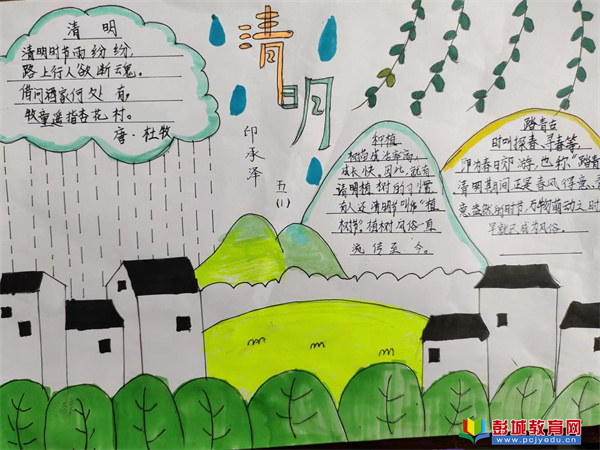 清明
清明
清明时节雨纷纷,
路上行人欲断魂。
借问酒家何处有,
牧童遥指杏花村。
唐·杜牧
印承泽
五(1)
种植
成长快。因此,就有
清明植树的习惯
有人还清明节叫作“植
树节”。植树风俗一直
流传至今。
踏青古
时叫探春、寻春等,
即为春日郊游,也称“踏春”
清明期间正是春风得意、春
意盎然的时节,万物萌动之时
早就已成为风俗。
彭城教育网
www.pcjyedu.cn